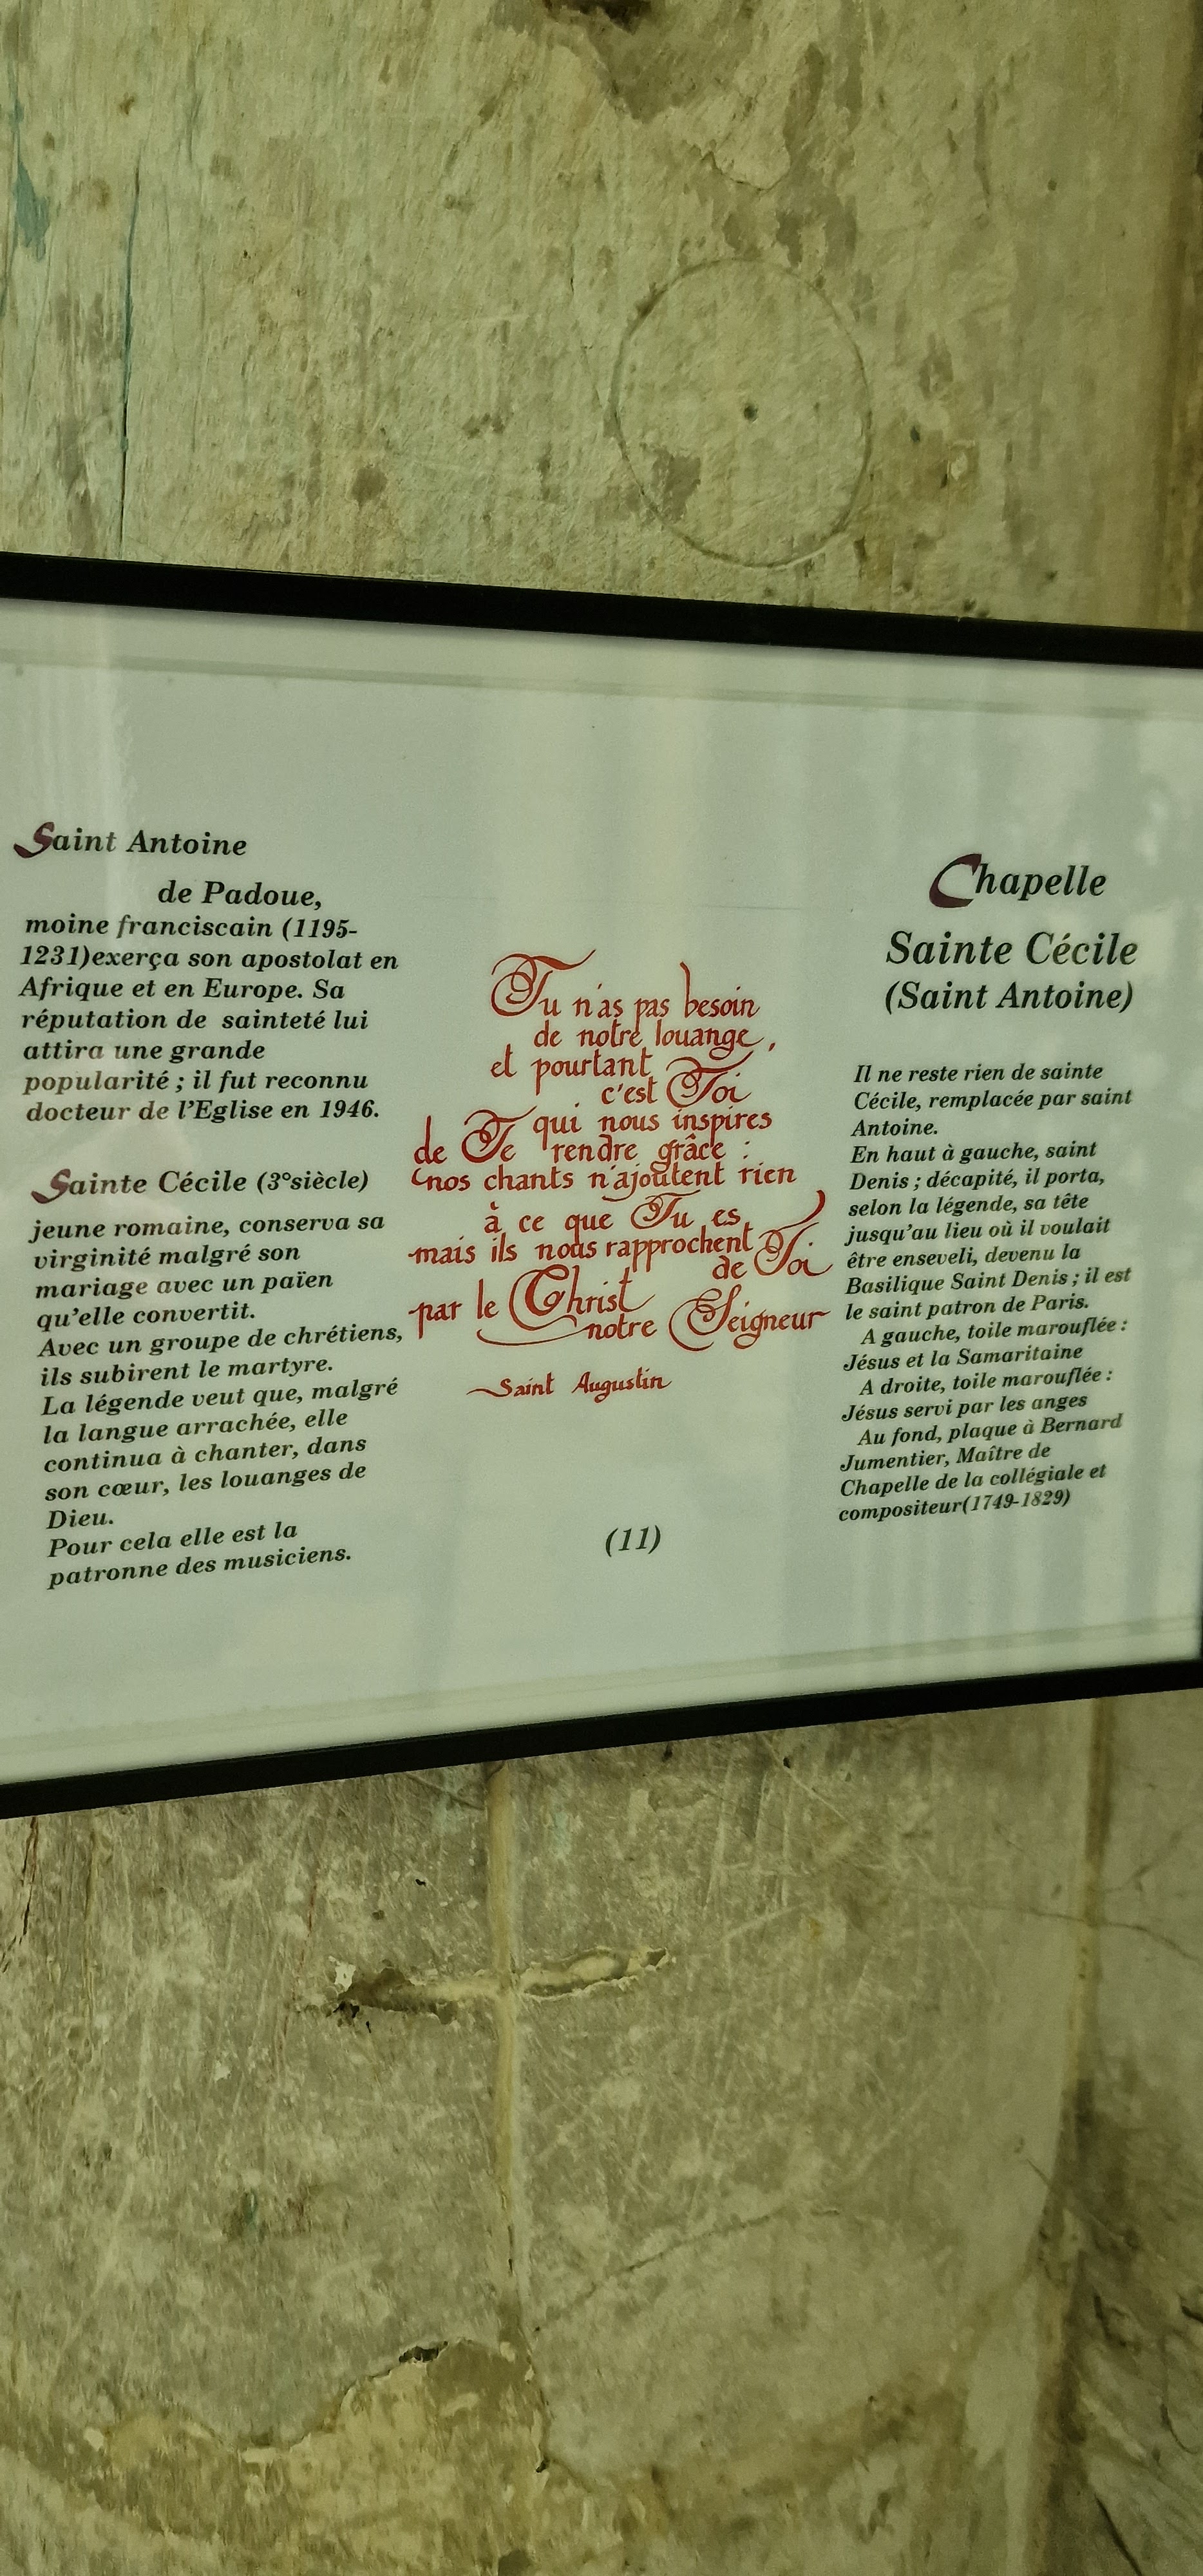 Saint Antoine
de Padoue,
moine franciscain (1195-
1231)exerça son apostolat en
Afrique et en Europe. Sa
réputation de sainteté lui
attira une grande
popularité ; il fut reconnu
docteur de l'Eglise en 1946.
Sainte Cécile (3°siècle)
jeune romaine, conserva sa
virginité malgré son
mariage avec un païen
qu'elle convertit.
Avec un groupe de chrétiens,
ils subirent le martyre.
La légende veut que, malgré
la langue arrachée, elle
continua à chanter, dans
son cœur, les louanges de
Dieu.
Pour cela elle est la
patronne des musiciens.
Tu n'as pas besoin
de notre louange,
et pourtant
c'est Toi
qui nous inspires
de Te rendre grâce :
nos chants n'ajoutent rien
à ce que Tu es,
mais ils nous rapprochent
de Toi
par le Christ
notre Seigneur
Saint Augustin
(11)
Chapelle
Sainte Cécile
(Saint Antoine)
Il ne reste rien de sainte
Cécile, remplacée par saint
Antoine.
En haut à gauche, saint
Denis ; décapité, il porta,
selon la légende, sa tête
jusqu'au lieu où il voulait
être enseveli, devenu la
Basilique Saint Denis ; il est
le saint patron de Paris.
A gauche, toile marouflée :
Jésus et la Samaritaine
A droite, toile marouflée :
Jésus servi par les anges
Au fond, plaque à Bernard
Jumentier, Maître de
Chapelle de la collégiale et
compositeur(1749-1829)